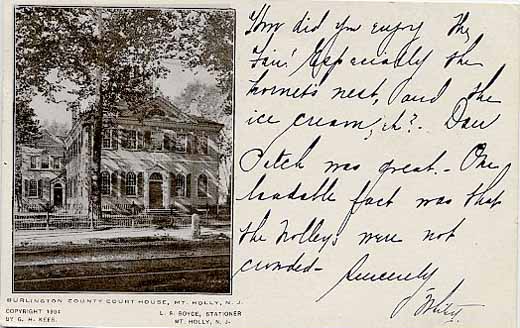 How did you enjoy the
Fair? Especially the
hornets nest, and the
ice cream, eh? Dan
Patch was great. - One
laudable fact was that
the trolleys were not
crowded -
Sincerely
BURLINGTON COUNTY COURT HOUSE, MT. HOLLY, N. J.
COPYRIGHT 1904
BY G. H. KEES.
L. S. BOYCE, STATIONER
MT. HOLLY, N. J.